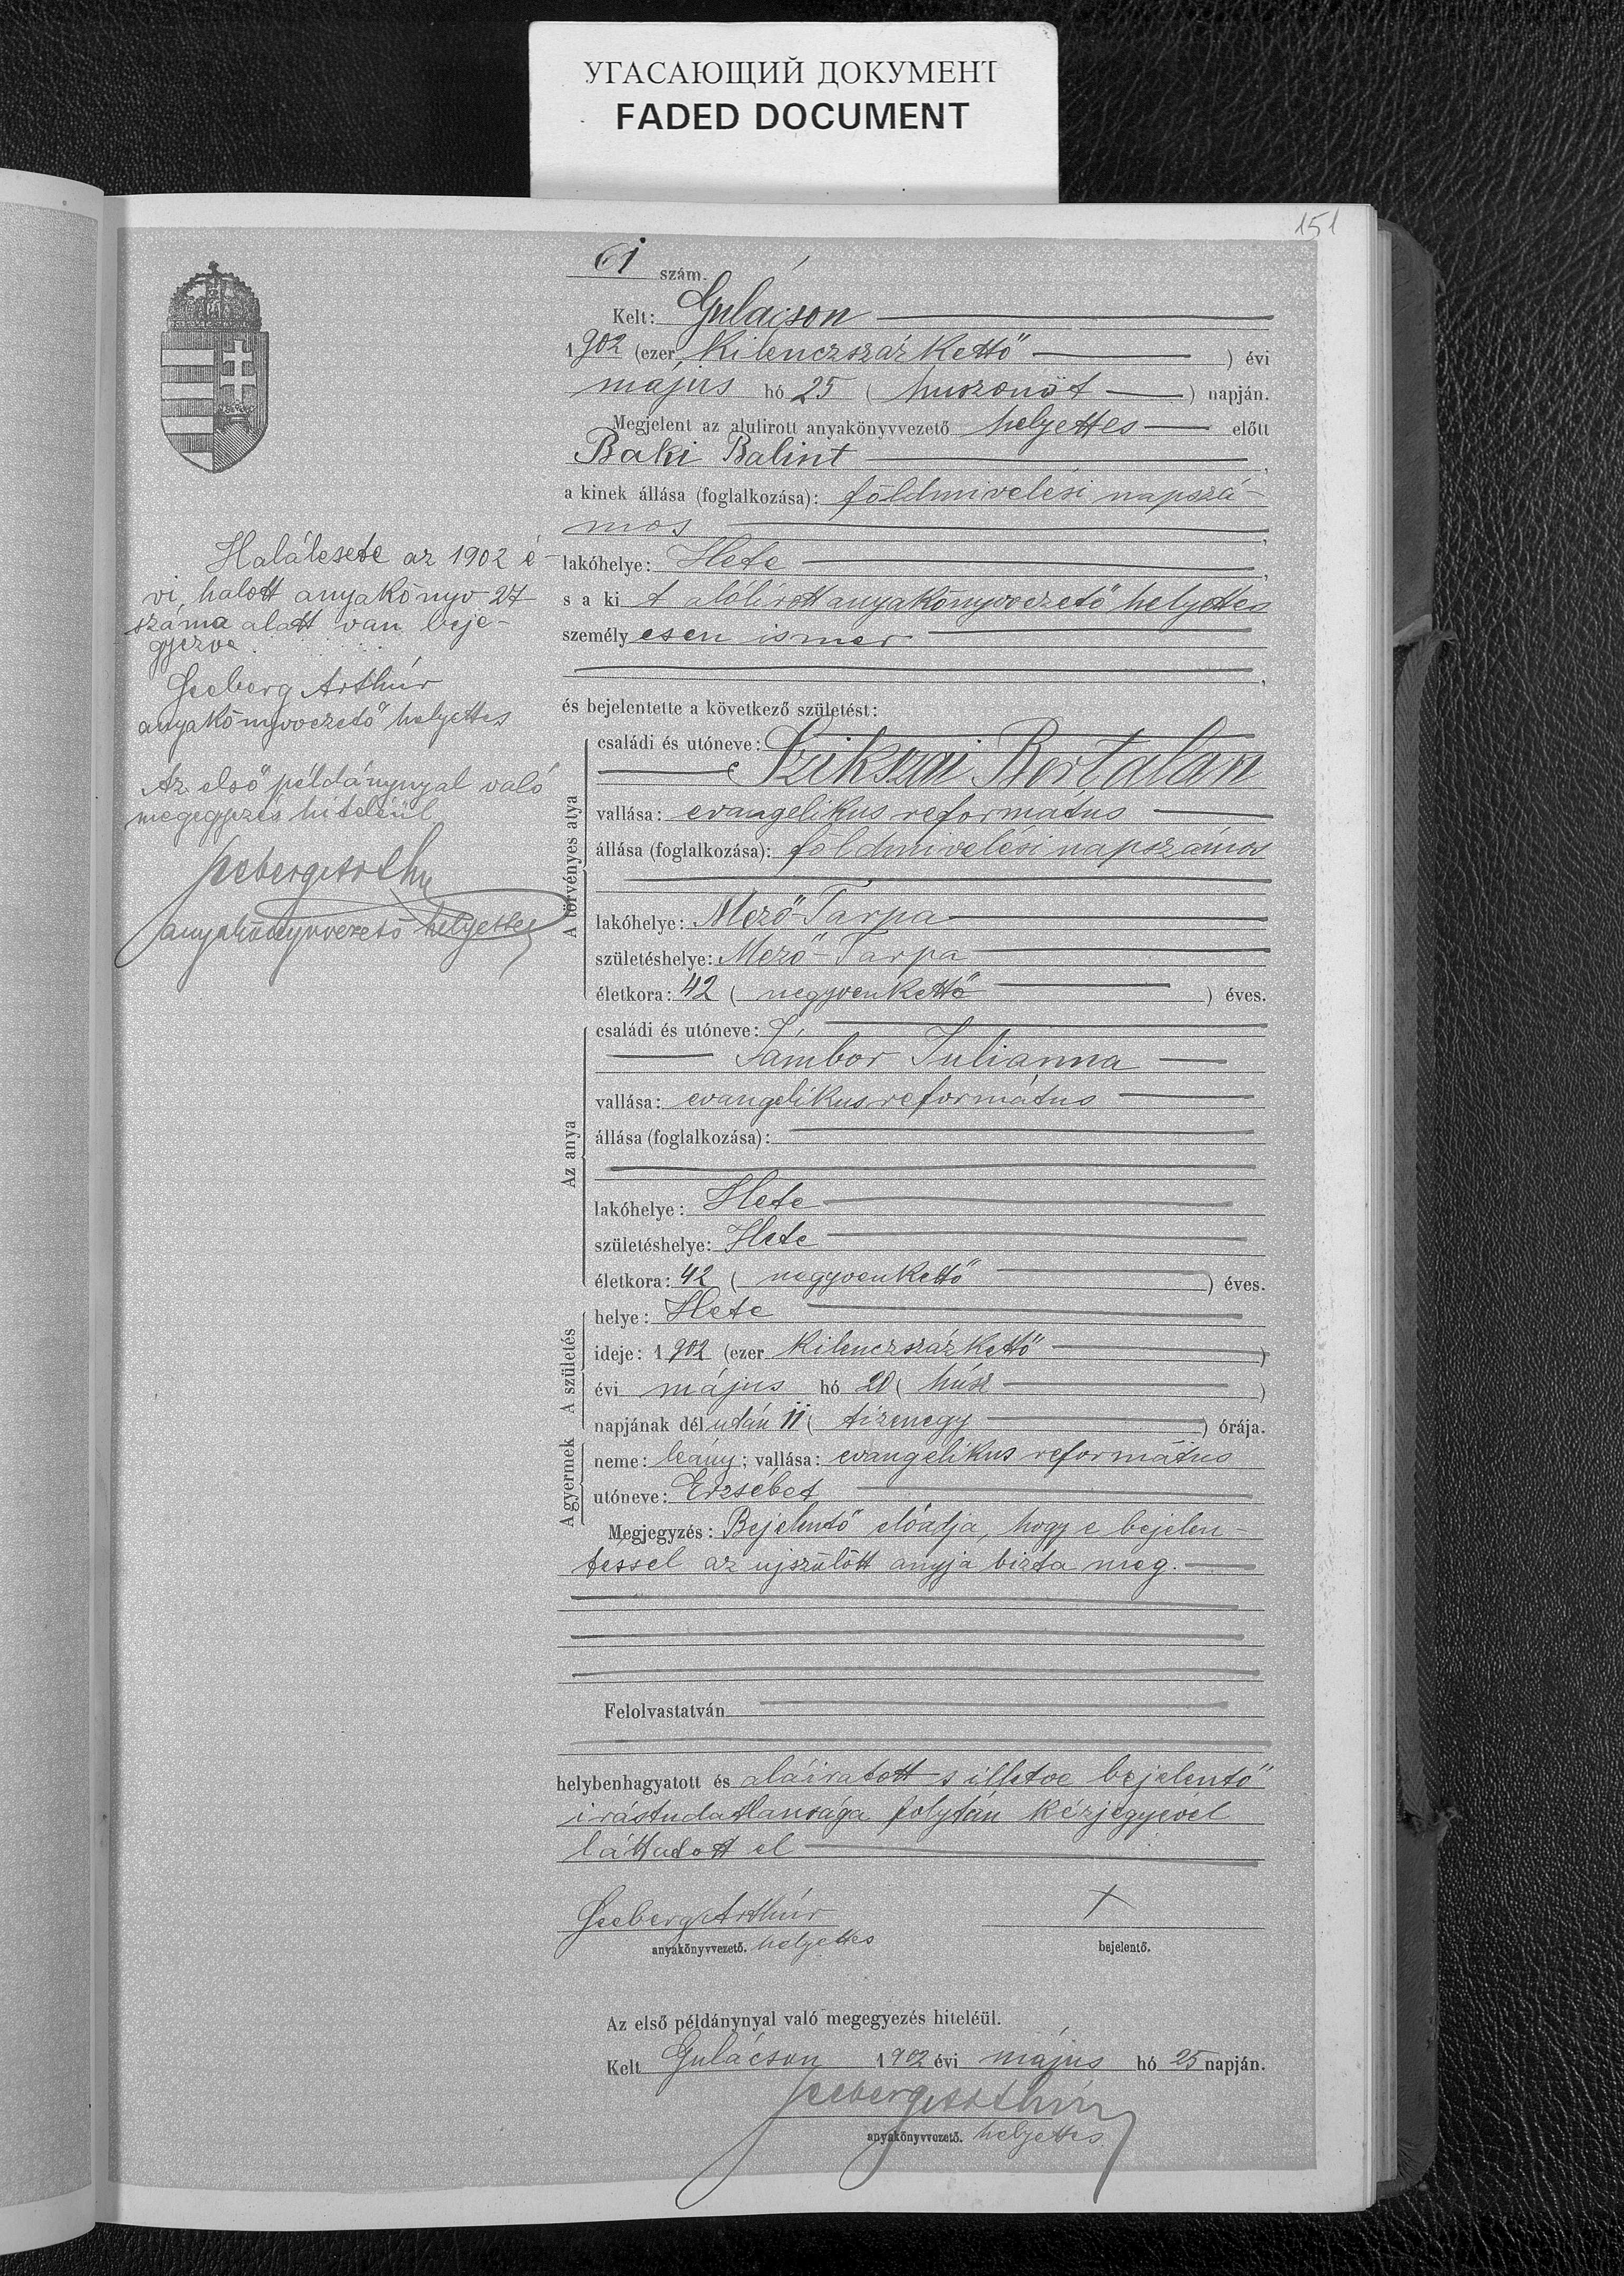 УГАСАЮЩИЙ ДОКУМЕНТ
FADED DOCUMENT
151
61 szám.
Kelt: Gulácson
1902 (ezer kilenczszázkettő) évi
május hó 25 (huszonöt) napján.
Megjelent az alulirott anyakönyvvezető helyettes előtt
Baki Balint,
a kinek állása (foglalkozása): földmivelési napszá-
mos,
lakóhelye: Hete,
s a ki t alólirott anyakönyvvezető helyettes
személyesen ismer
,
és bejelentette a következő születést:
A törvényes atya
családi és utóneve:
Szikszai Bertalan
vallása: evangelikus református
állása (foglalkozása): földmivelési napszámos
lakóhelye: Mező-Tarpa
születéshelye: Mező-Tarpa
életkora: 42 (negyvenkettő) éves.
Az anya
családi és utóneve:
Jámbor Julianna
vallása: evangelikus református
állása (foglalkozása):
lakóhelye: Hete
születéshelye: Hete
életkora: 42 (negyvenkettő) éves.
A születés
helye: Hete
ideje: 1902 (ezer kilenczszázkettő)
évi május hó 20 (húsz)
napjának délután 11 (tizenegy) órája.
A gyermek
neme: leány; vallása: evangelikus református
utóneve: Erzsébet
Megjegyzés: Bejelentő előadja, hogy e bejelen-
téssel az ujszülött anyja bizta meg.
Felolvastatván
helybenhagyatott és aláiratott s illetve bejelentő
irástudatlansága folytán kézjegyével
láttatott el
Seeberg Arthúr
anyakönyvvezető. helyettes
X
bejelentő.
Az első példánynyal való megegyezés hiteléül.
Kelt Gulácson 1902 évi május hó 25 napján.
Seeberg Arthúr
anyakönyvvezető. helyettes
Halálesete az 1902 é-
vi halott anyakönyv 27
száma alatt van beje-
gyezve.
Seeberg Arthúr
anyakönyvvezető helyettes
Az első példánynyal való
megegyezés hiteléül
Seeberg Arthur
anyakönyvvezető helyettes